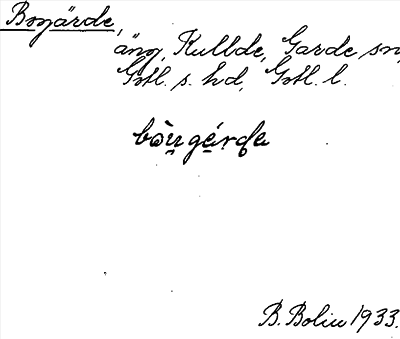 Bogärde,
äng, Kullbde, Garde sn,
Gotl. s. hd, Gotl. l.
B. Bolin 1933.